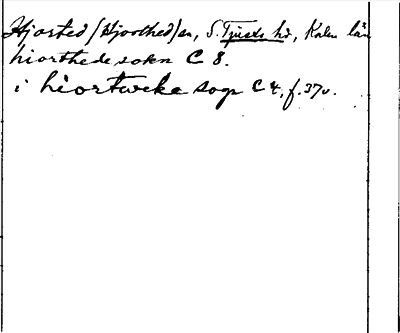 Hjorted (Hjoothed)sn, S. Tjusts hd, Kalm län
hiorthede sokn C 8.
i hiortweke sogn C 4, f. 37v.